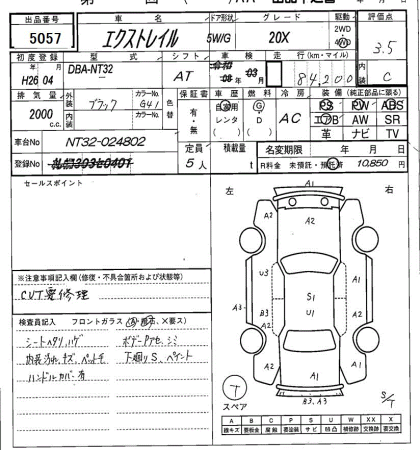 出品番号 車名 ドア形状 グレード 駆動 評価点
5057 エクストレイル 5W/G 20X 2WD 4WD 3.5
初度登録 型式 シフト 車検 走行(km・マイル) 内装
H26 04 DBA-NT32 AT 08年 03月 84,200 C
排気量 外装 ブラック カラーNo. G41 色替 保証書 車歴 燃料 冷房 装備(純正部品に限る)
2000 c.c. 内装 カラーNo. 有・無 自家用 レンタ G D AC PS PW ABS
エアB AW SR
革 ナビ TV
車台No NT32-024802 定員 積載量 名変期限 年 月 日
登録No 5人 t R料金 未預託・預託済 10,850円
セールスポイント 左 右
※注意事項記入欄(修復・不具合箇所および状態等)
CVT要修理
検査員記入 フロントガラス ×要ス)
シートヘタリ、ハゲ ボデーアセ、シミ
内装汚れ、キズ、ペット毛 下廻りS、ペイント
ハンドルカバー有
A1
A2 A2 A1
U3 S1
A3 B3 U1 A1
A2 A2 A1
A1
B3, A3
T
スペア
S/T
A B C P S U W X XX
線キズ 要板金 要塗装 サビ 凹凸 補修跡 要交換 交換跡